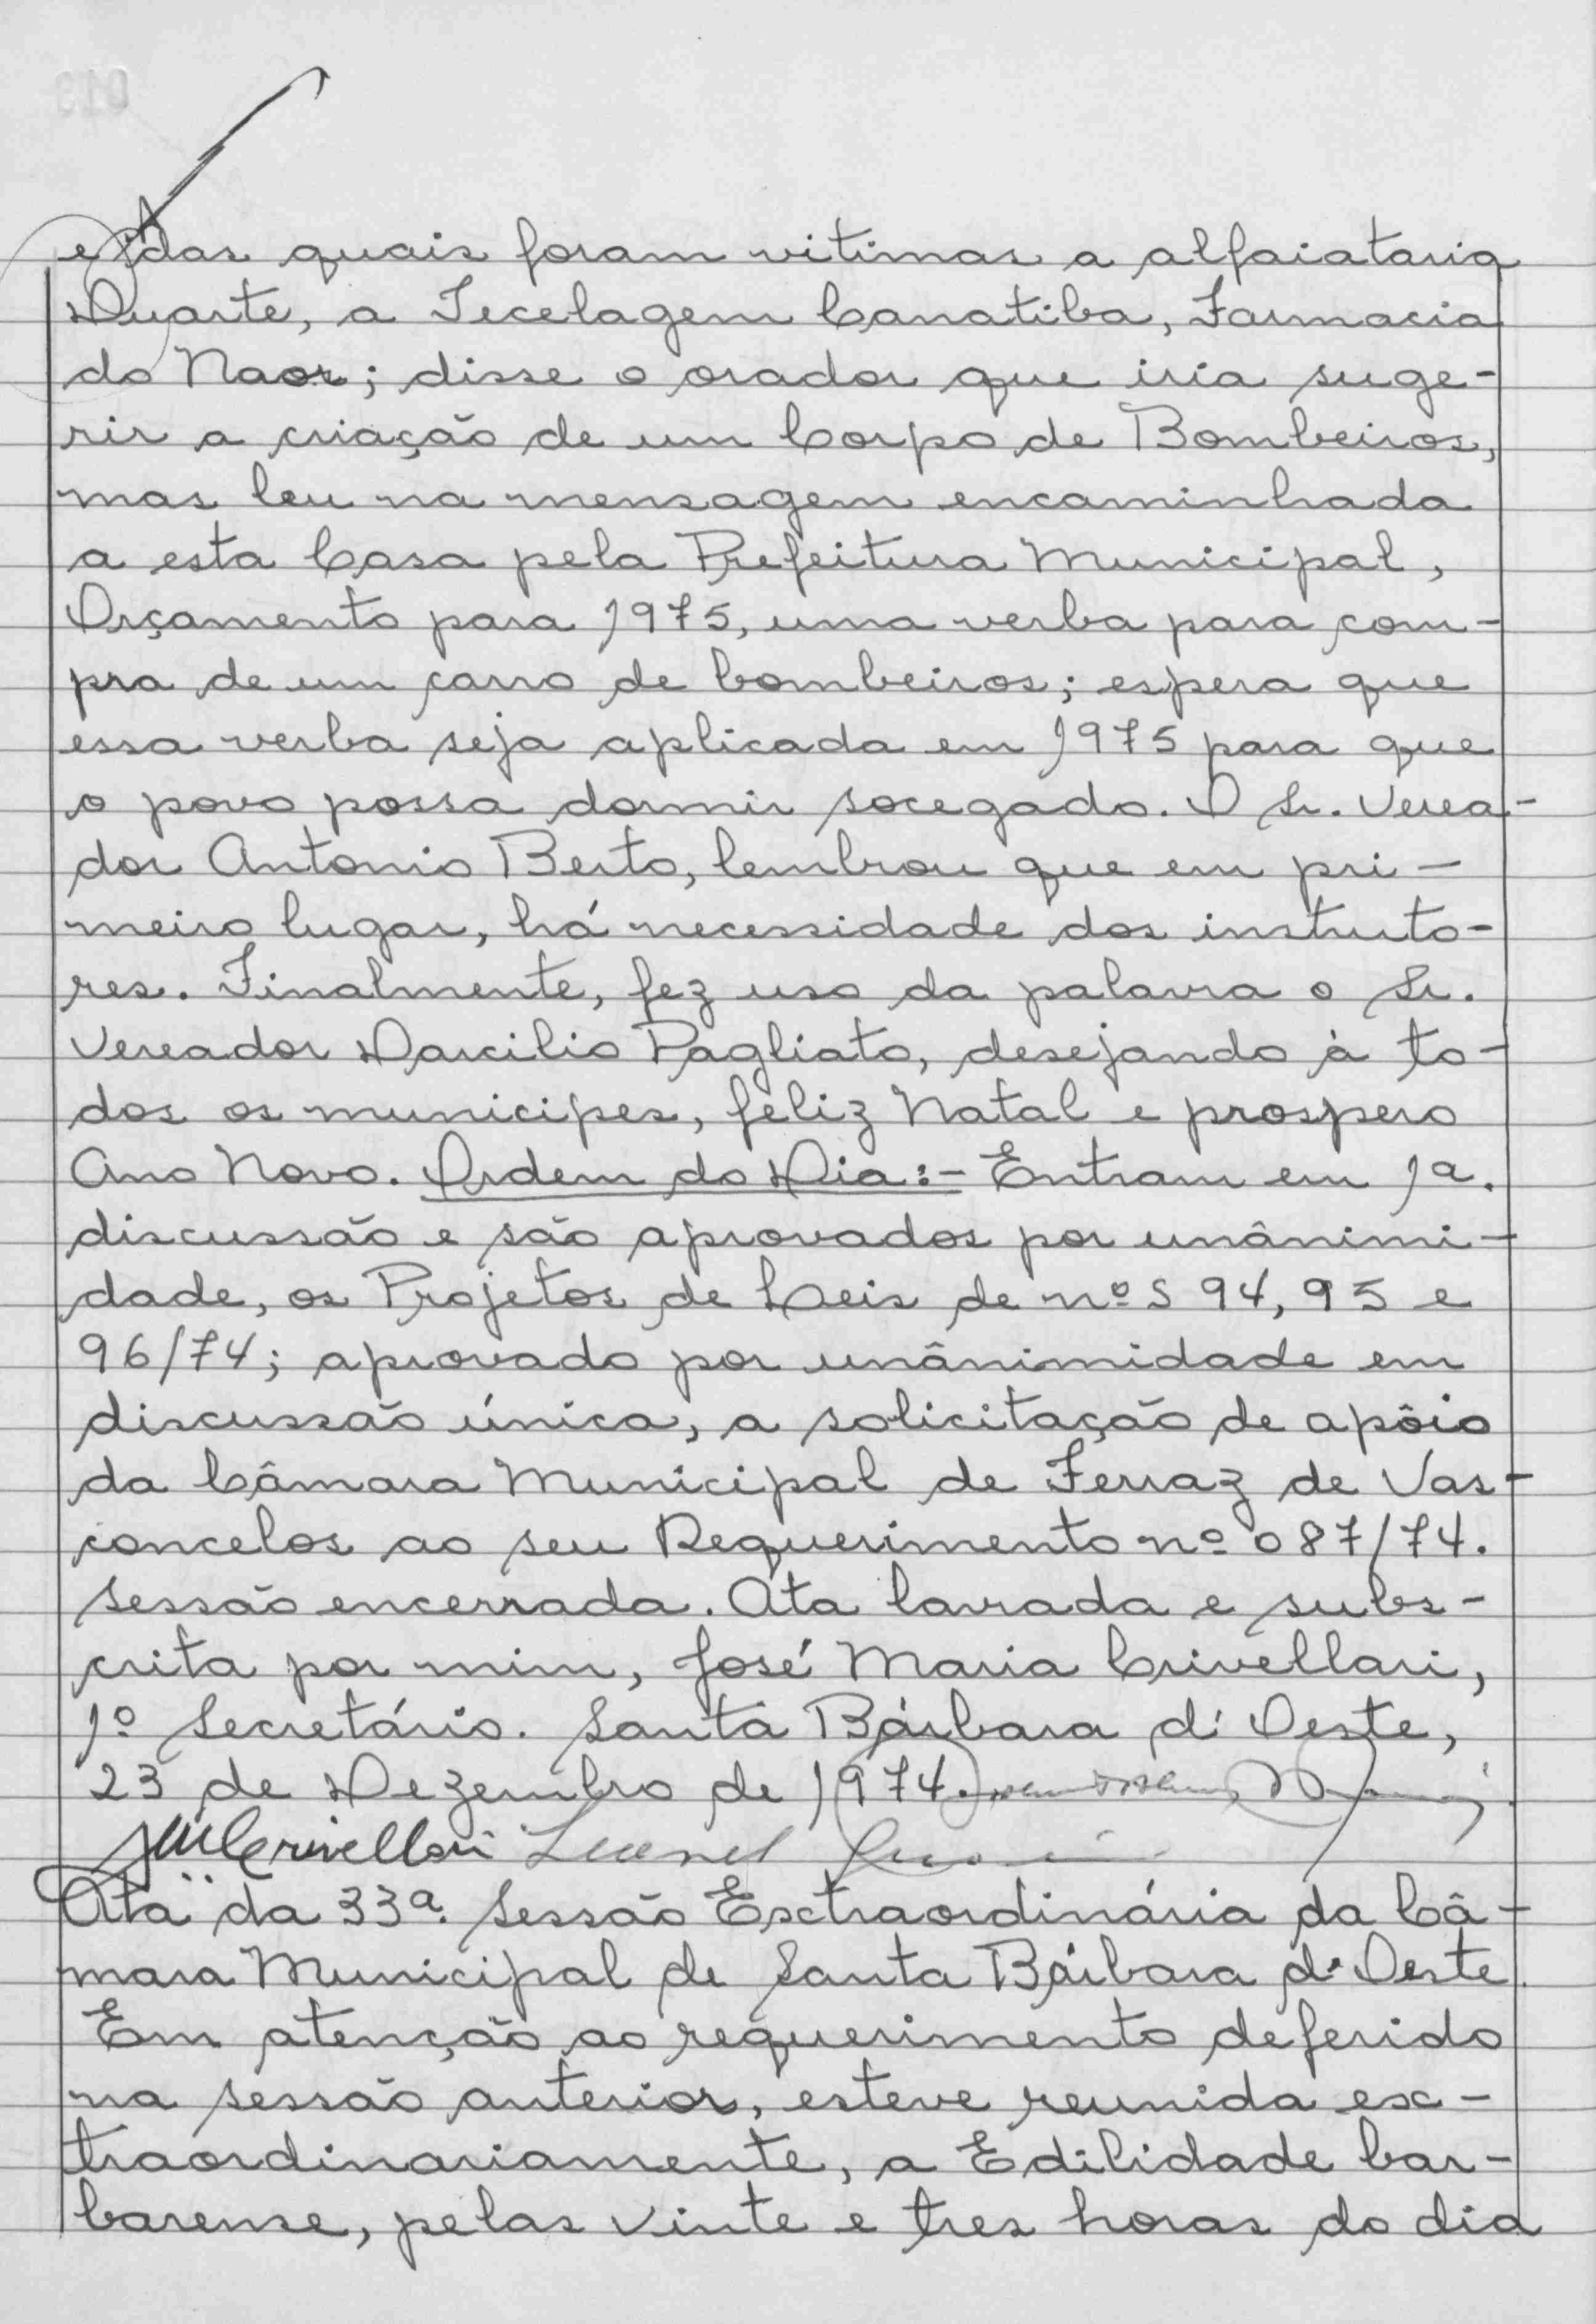 e das quais foram vitimas a alfaiataria
Duarte, a Tecelagem Canatiba, Farmacia
do Naor; disse o orador que iria suge-
rir a criação de um Corpo de Bombeiros,
mas leu na mensagem encaminhada
a esta Casa pela Prefeitura Municipal,
Orçamento para 1975, uma verba para com-
pra de um carro de bombeiros; espera que
essa verba seja aplicada em 1975 para que
o povo possa dormir socegado. O Sr. Verea-
dor Antonio Berto, lembrou que em pri-
meiro lugar, há necessidade dos instruto-
res. Finalmente, fez uso da palavra o Sr.
Vereador Darcilio Pagliato, desejando à to-
dos os municipes, feliz Natal e prospero
Ano Novo. Ordem do Dia:- Entram em 1a.
discussão e são aprovados por unânimi-
dade, os Projetos de Leis de nºs 94, 95 e
96/74; aprovado por unânimidade em
discussão única, a solicitação de apôio
da Câmara Municipal de Ferraz de Vas-
concelos ao seu Requerimento nº 087/74.
Sessão encerrada. Ata lavrada e subs-
crita por mim, José Maria Crivellari,
1º Secretário. Santa Bárbara d'Oeste,
23 de Dezembro de 1974.
JMCrivellari
Ata da 33ª. Sessão Extraordinária da Câ-
mara Municipal de Santa Bárbara d'Oeste.
Em atenção ao requerimento deferido
na sessão anterior, esteve reunida ex-
traordinariamente, a Edilidade bar-
barense, pelas vinte e tres horas do dia